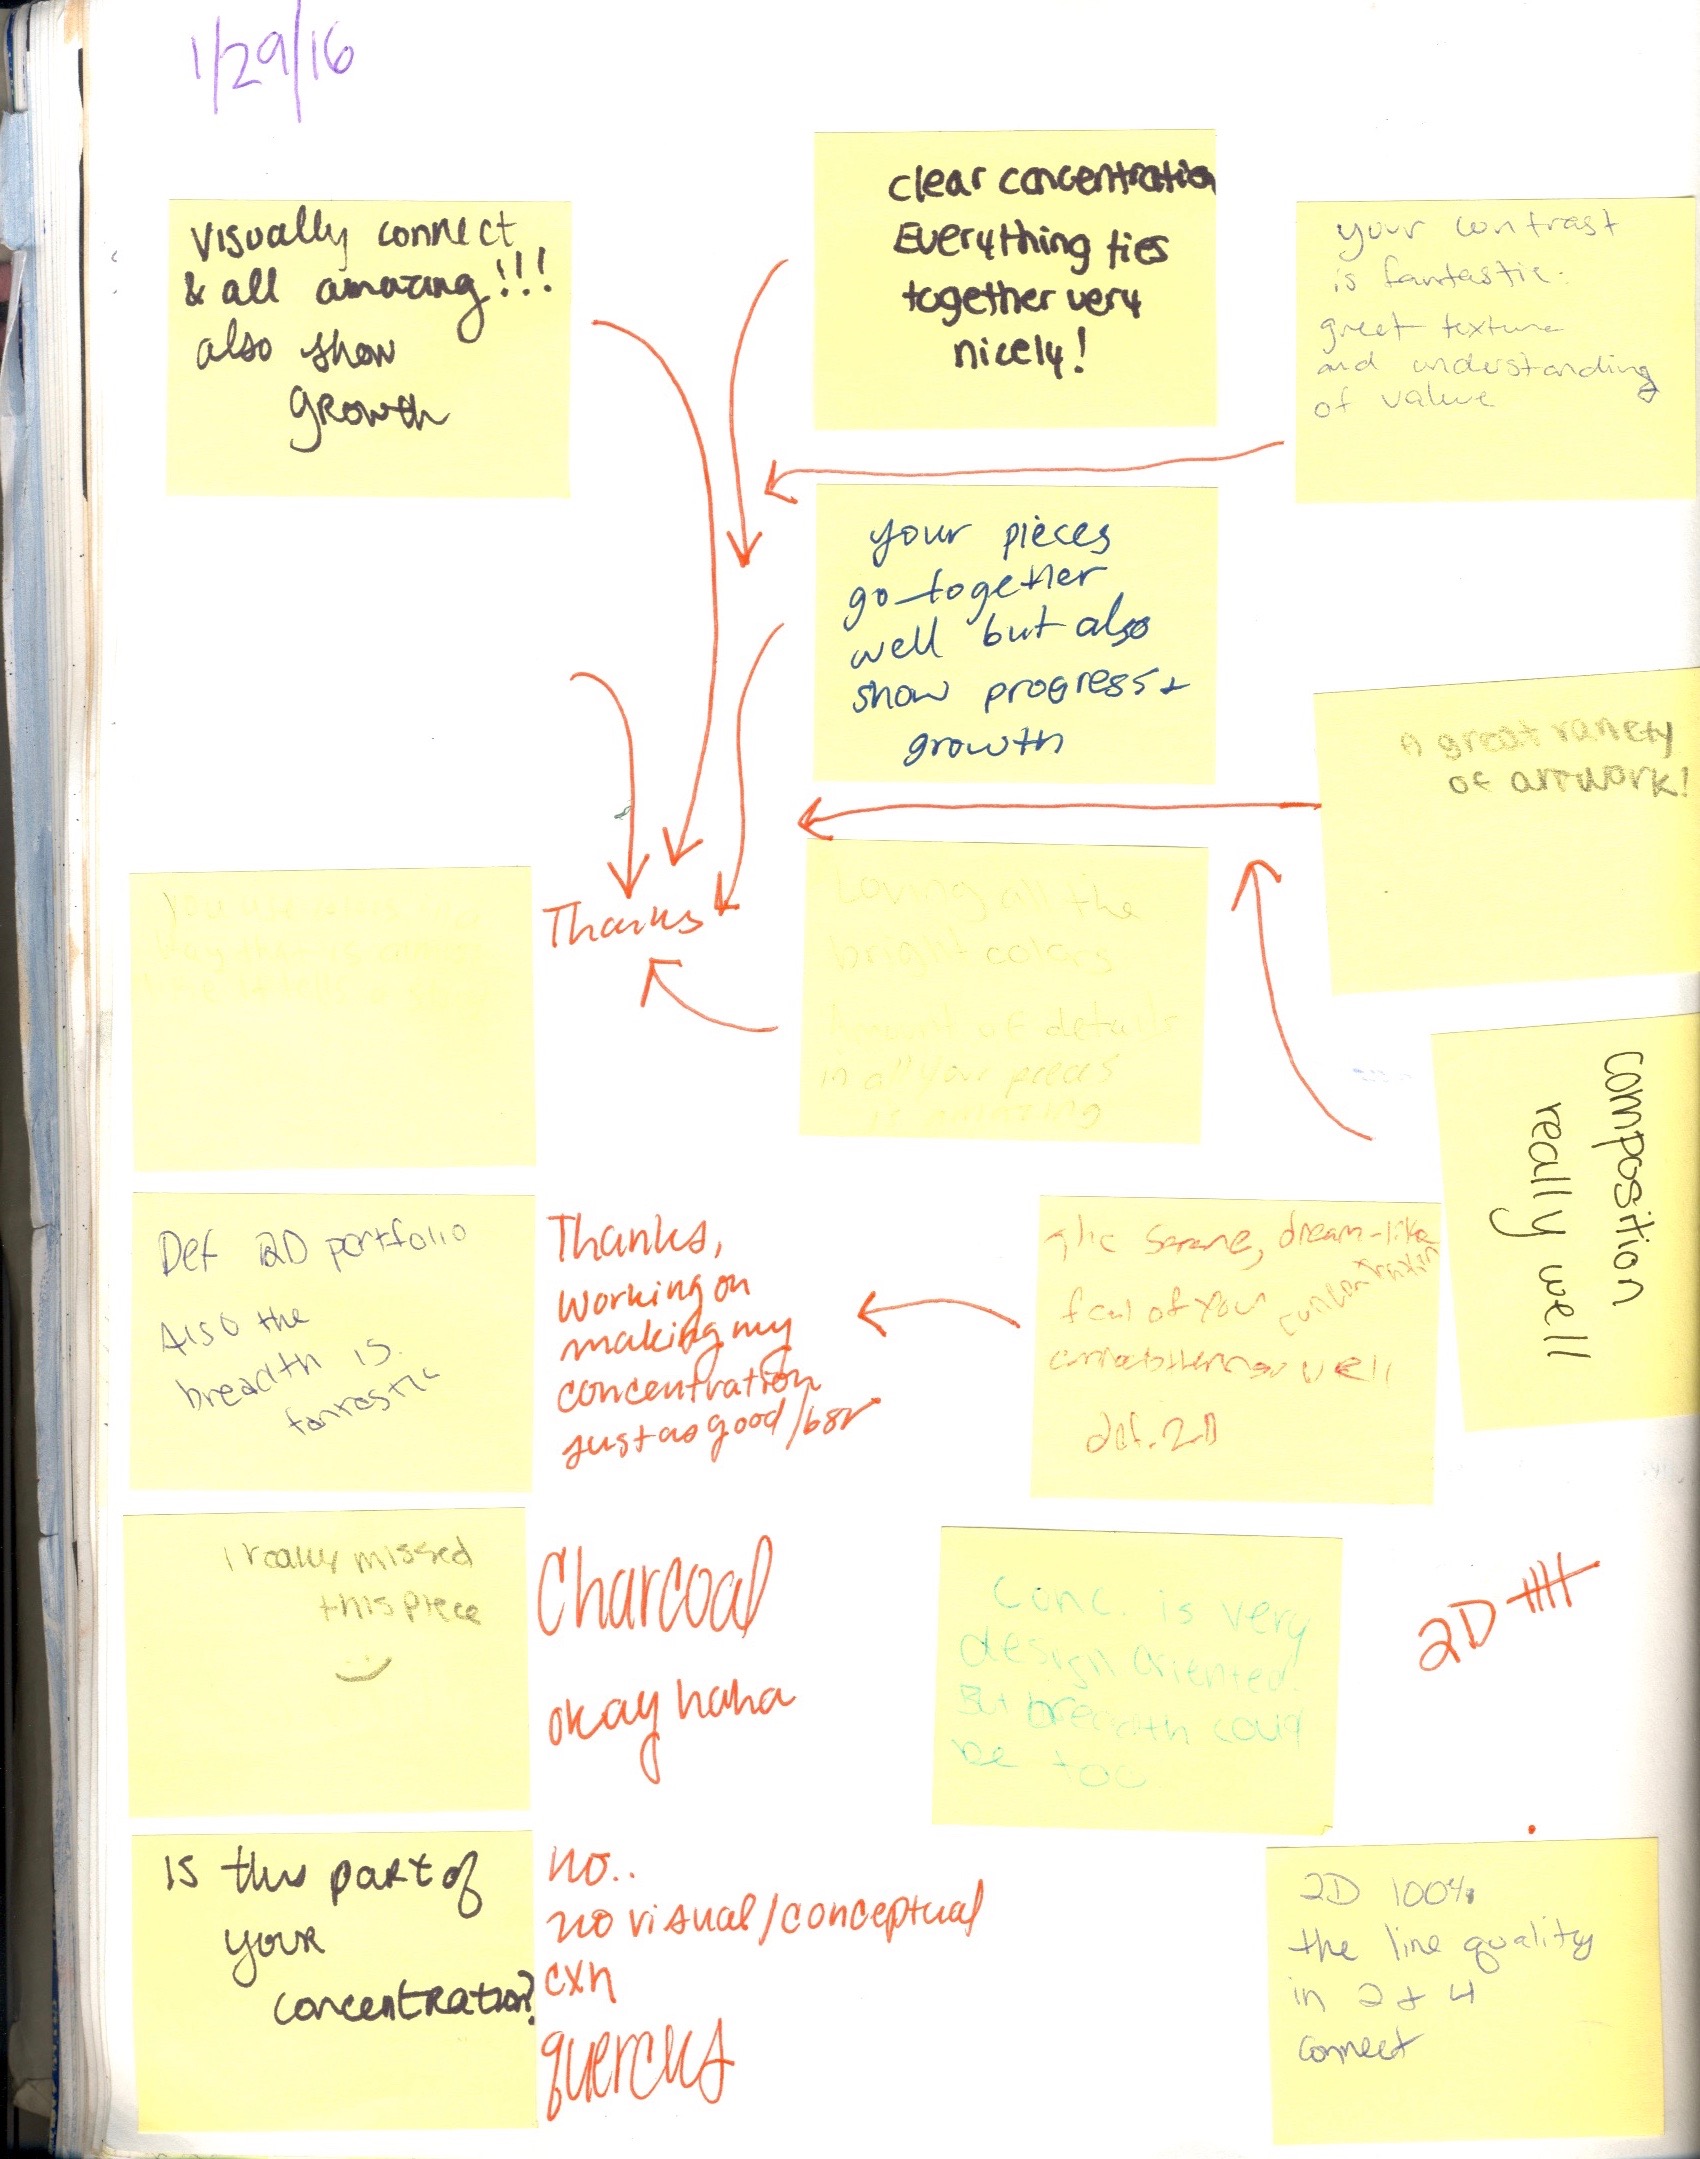 1/29/16
Visually connect
& all amazing!!!
also show
growth
clear concentration
Everything ties
together very
nicely!
your contrast
is fantastic.
great texture
and understanding
of value
your pieces
go together
well but also
show progress +
growth
A great variety
of artwork!
You use colors in a
way that is
Thanks
Loving all the
bright colors
Amount of details
in all your pieces
is amazing
composition
really well
Def 2D portfolio
Also the
breadth is
fantastic
Thanks,
working on
making my
concentration
just as good/
the serene, dream-like
feel of your concentration
well
def. 2D
I really missed
this piece
Charcoal
okay haha
Conc. is very
design oriented.
But breadth could
be too
2D
Is this part of
your
concentration?
no..
no visual/conceptual
cxn
quercus
2D 100%
the line quality
in 2 & 4
connect